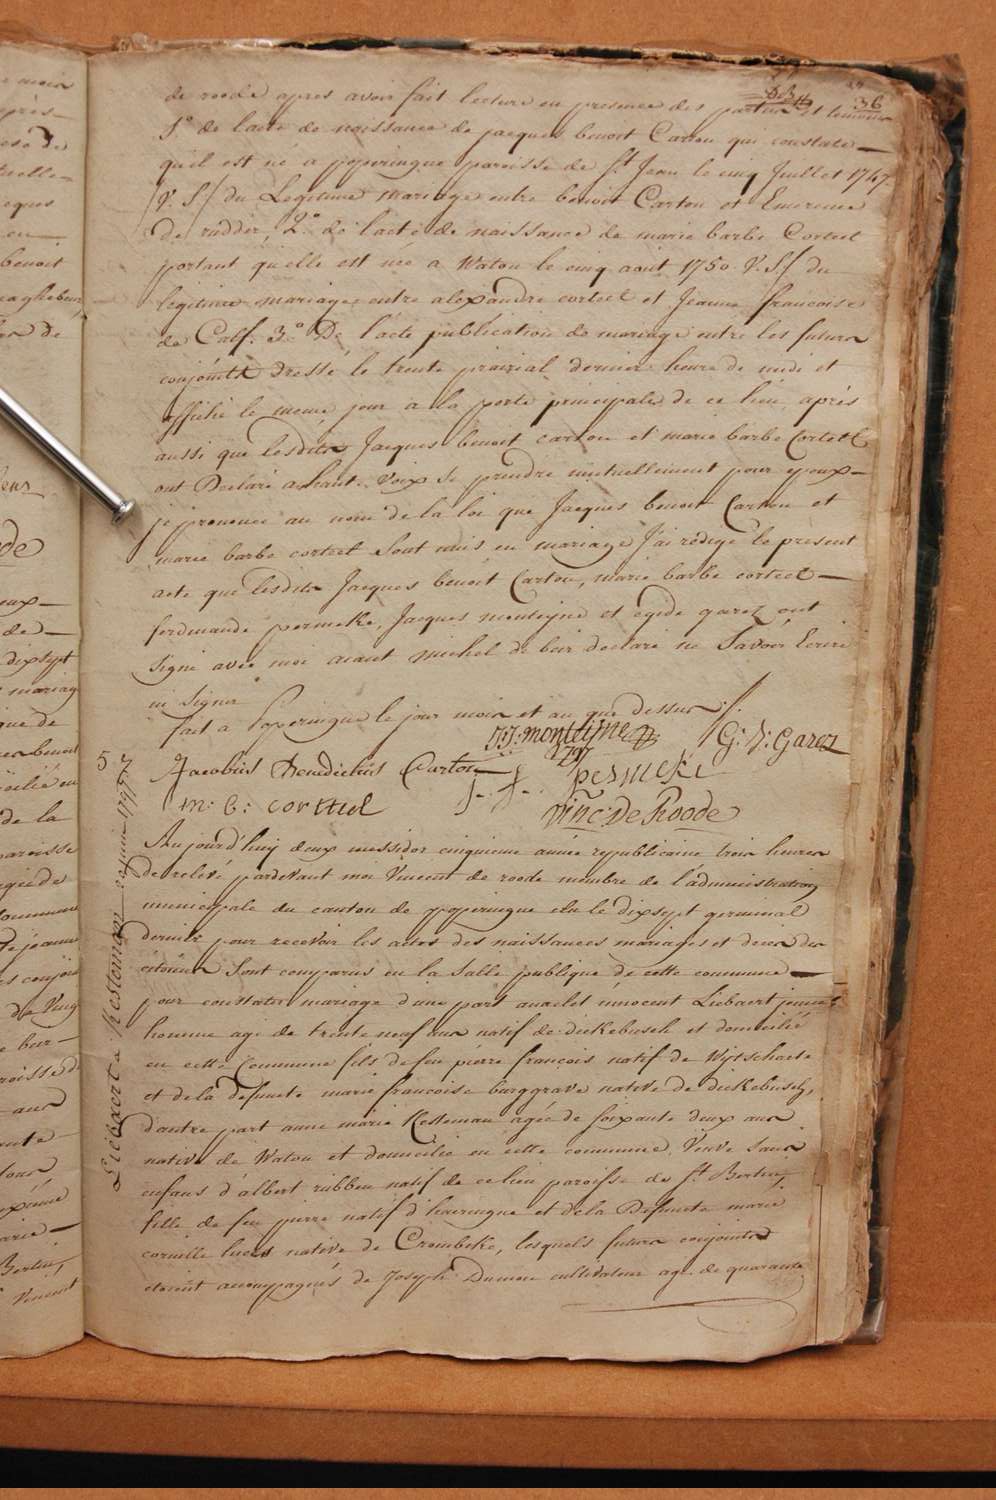 36
de roode apres avoir fait lecture en presence des parties et temoins
1° de lacte de naissance de jacques benoit Cartou qui constate
quil est né a poperingue paroisse de St Jean le cinq Juillet 1747.
/V. S./ du Legitime mariage entre benoit Cartou et Emerence
De rudder, 2° de lacte de naissance de marie barbe Corteel
portant quelle est née a Watou le cinq aout 1750 V. S./ du
legitime mariage entre alexandre corteel et Jeanne francoise
de Calf. 3° De l'acte publication de mariage entre les futurs
conjoints dressé le trente prairial dernier heure de midi et
affiché le meme jour a la porte principale de ce lieu, après
aussi que lesdits Jacques benoit cartou et marie barbe Corteel
ont Declaré a haute voix se prendre mutuellement pour epoux
je prononce au nom de la loi que Jacques benoit Cartou et
marie barbe corteel sont unis en mariage J'ai rédigé le present
acte que lesdits Jacques benoit Cartou, marie barbe corteel
ferdinande permeke, Jacques monteigne et egide garez ont
signé avec moi aiant michel de beir declaré ne Savoir Ecrire
ni signer
fait a Poperingue le jour mois et an que dessus ./.
JJ: monteijne
1797
G: J: Garez
Jacobus Benedictus Cartou
f. f. permeke
m: b: corteel
vinc: De Roode
5
Liebaert & Kesteman
Aujourd'huy deux messidor cinquieme année republicaine trois heures
de relevé pardevant moi Vincent de roode membre de l'administration
municipale du canton de poperingue elu le dixsept germinal
dernier pour recevoir les actes des naissances mariages et deces des
citoiens sont comparus en la salle publique de cette commune
pour constater mariage d'une part anaclet innocent Liebaert jeune
homme agé de trente neuf ans natif de dickebusch et domicilié
en cette Commune fils de feu pierre françois natif de Wytschaete
et de la defunte marie francoise burggrave native de dickebusch,
dautre part anne marie Kesteman agée de soixante deux ans
native de Watou et domicilié en cette commune, Veuve sans
enfans d'albert rubben natif de ce lieu paroisse de St Bertin,
fille de feu pierre natif d'haringue et de la Defunte marie
corneille lucas native de Crombeke, lesquels futurs conjoints
etoient accompagnés de Joseph Dumon cultivateur agé de quarante